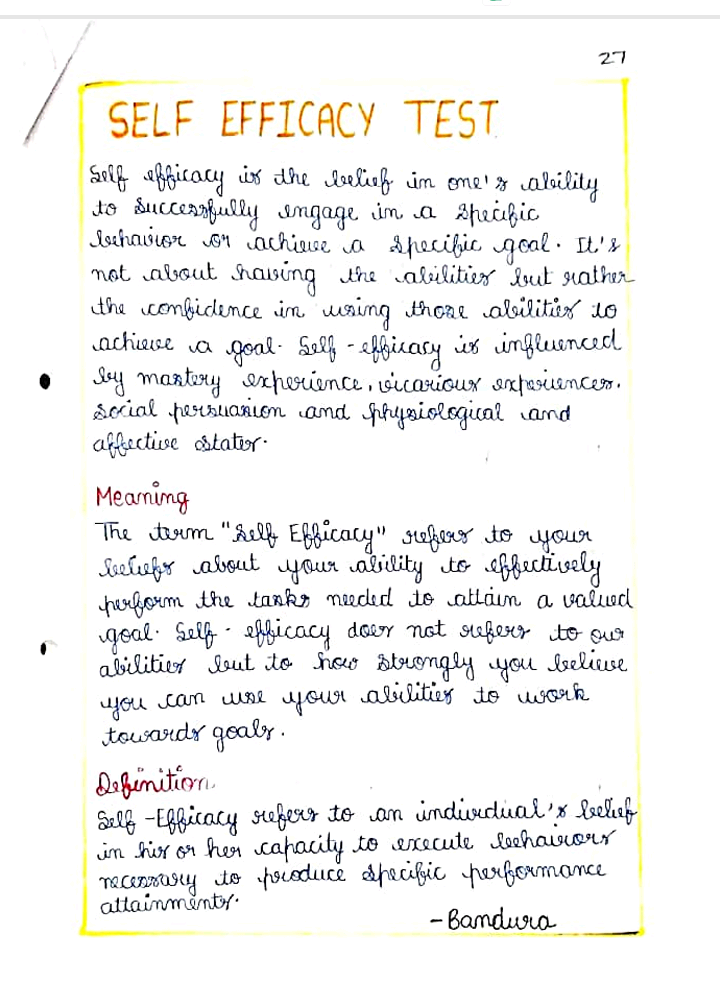 27
SELF EFFICACY TEST
Self efficacy is the belief in one's ability
to successfully engage in a specific
behavior or achieve a specific goal. It's
not about having the abilities but rather
the confidence in using those abilities to
achieve a goal. Self-efficacy is influenced
by mastery experience, vicarious experiences.
Social persuasion and physiological and
affective states.
Meaning
The term "Self Efficacy" refers to your
beliefs about your ability to effectively
perform the tasks needed to attain a valued
goal. Self-efficacy does not refers to our
abilities but to how strongly you believe
you can use your abilities to work
towards goals.
Definition
Self-Efficacy refers to an individual's belief
in his or her capacity to execute behaviors
necessary to produce specific performance
attainments.
-Bandura